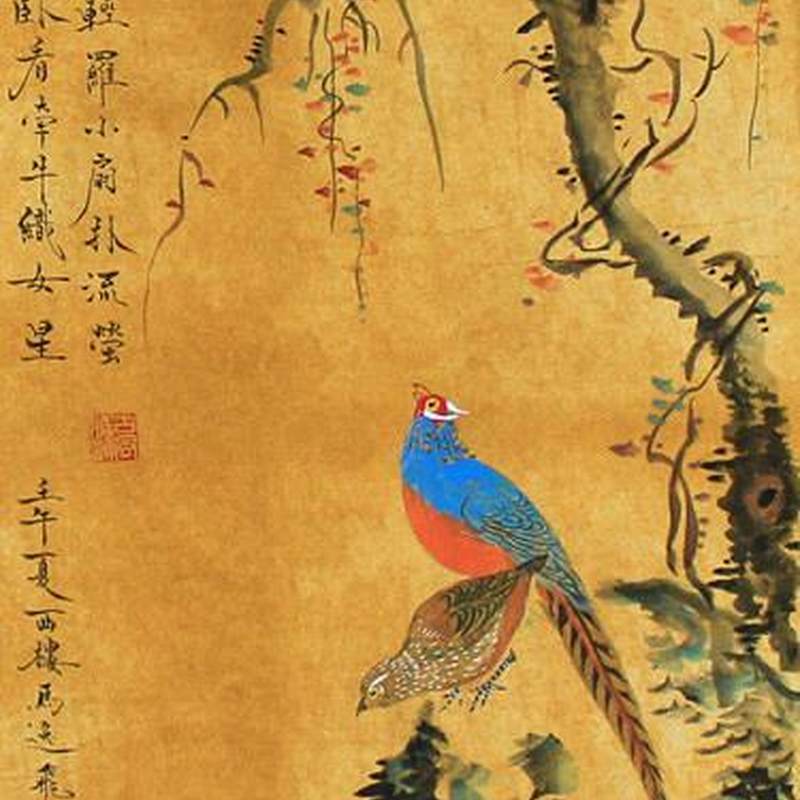 輕羅小扇扑流螢
臥看牽牛織女星
壬午夏西樓馬逸飛